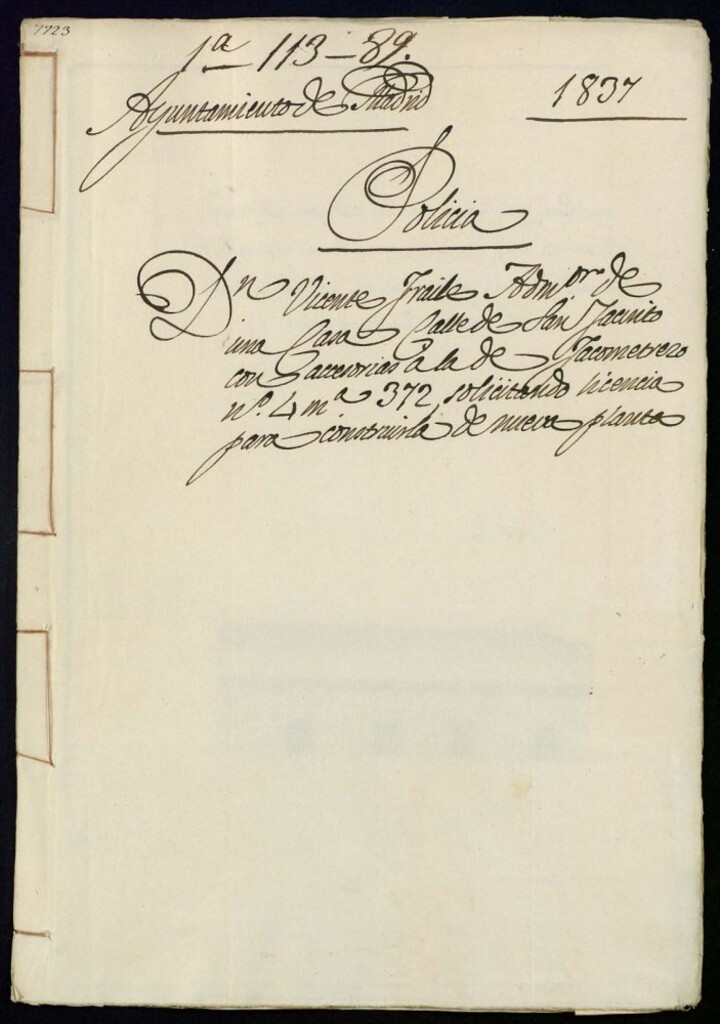 7723
1ª 113-89.
Ayuntamiento de Madrid
1837
Policia
Dn Vicente Fraile Admor de
una Casa Calle de San Jacinto
con accesorias á la de Jacometrezo
nº. 4 mª 372, solicitando licencia
para construirla de nueva planta